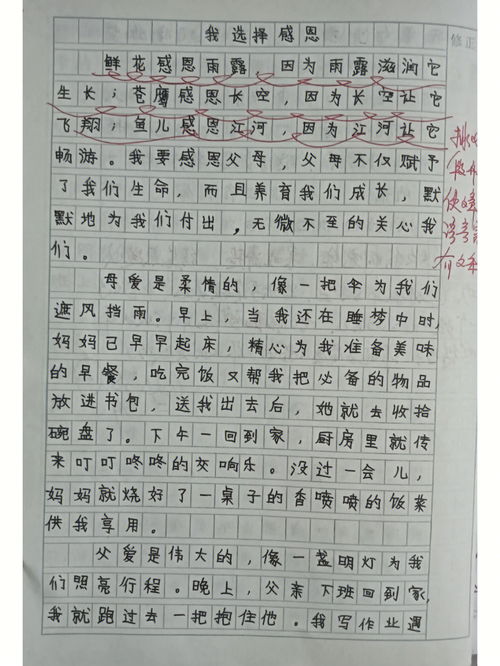 我选择感恩
修正
鲜花感恩雨露，因为雨露滋润它
生长；苍鹰感恩长空，因为长空让它
飞翔；鱼儿感恩江河，因为江河让它
畅游。我要感恩父母，父母不仅赋予
了我们生命，而且养育我们成长，默
默地为我们付出，无微不至的关心我
们。
母爱是柔情的，像一把伞为我们
遮风挡雨。早上，当我还在睡梦中时，
妈妈已早早起床，精心为我准备美味
的早餐，吃完饭又帮我把必备的物品
放进书包，送我出去后，她就去收拾
碗盘了。下午一回到家，厨房里就传
来叮叮咚咚的交响乐。没过一会儿，
妈妈就烧好了一桌子的香喷喷的饭菜
供我享用。
父爱是伟大的，像一盏明灯为我
们照亮行程。晚上，父亲下班回到家，
我就跑过去一把抱住他。我写作业遇